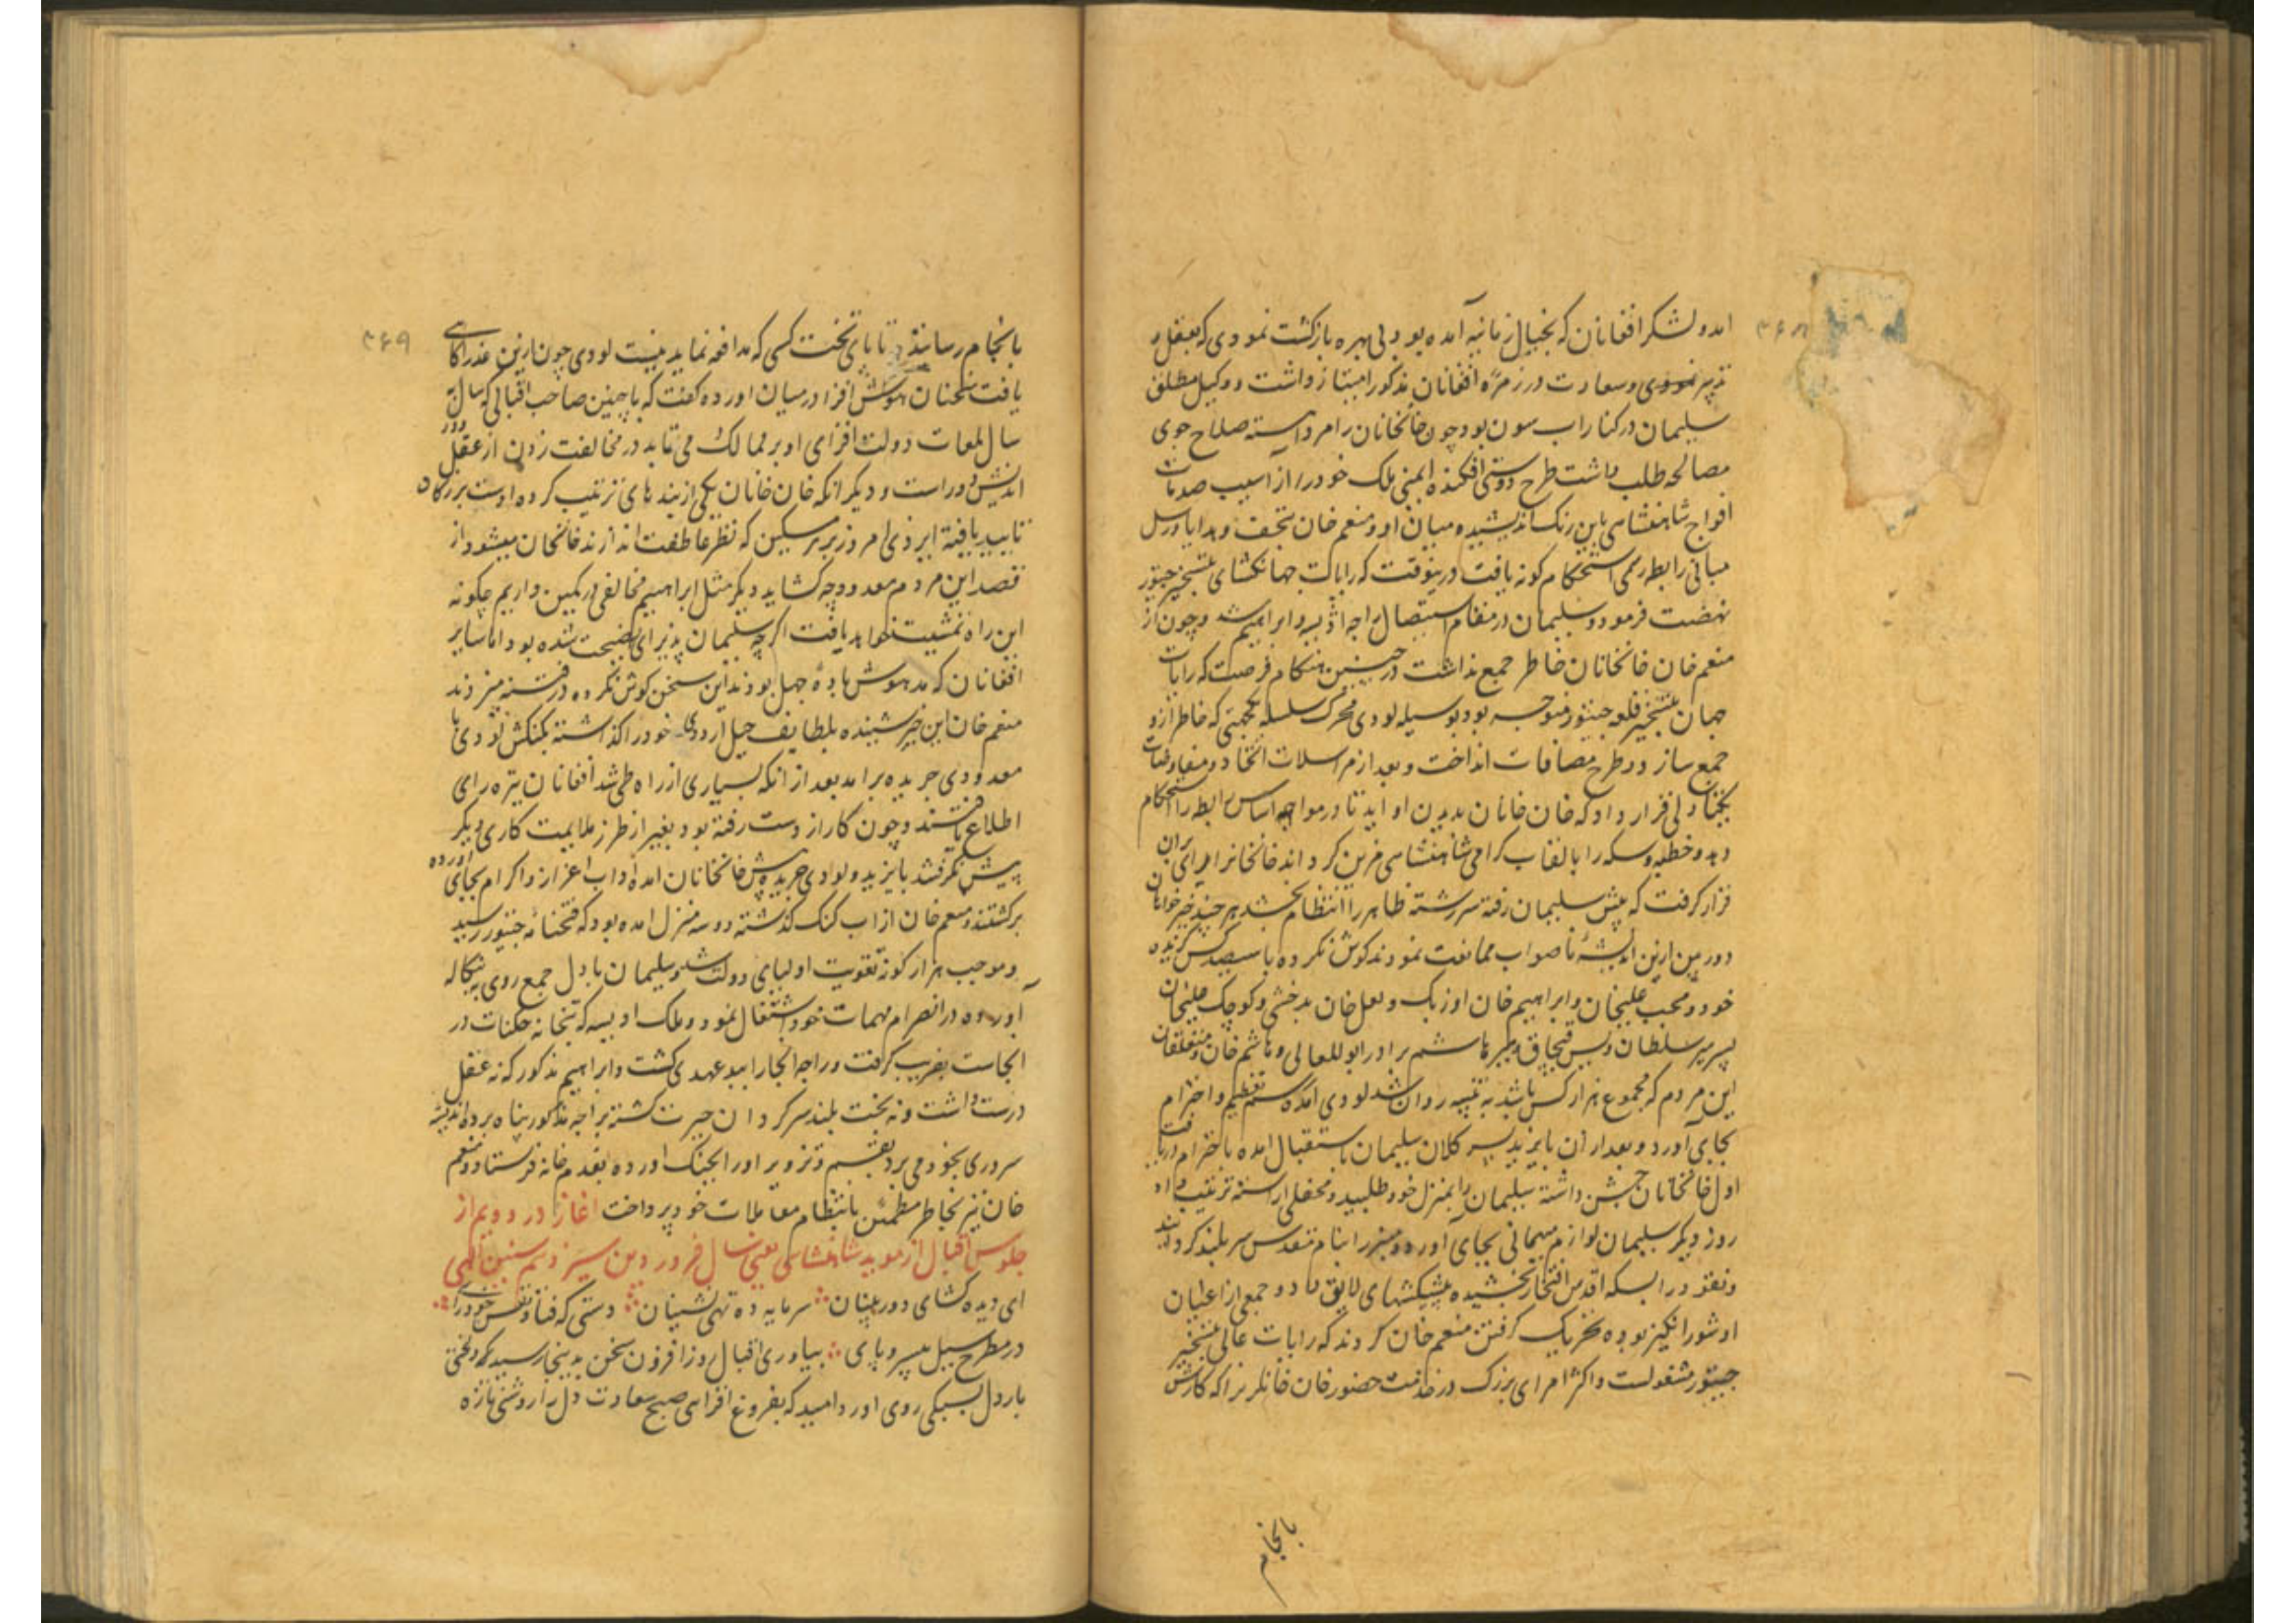 ۳۶۸
امد و لشکر افغانان که بخیال زمانیه آمده بود بی بهره بازکشت نمود لودی که بعقل و
تدبیر نمودی و سعادت در زمرهٔ افغانان مذکور امتیاز داشت و وکیل مطلق
سلیمان در کنار اب سون بود چون خانخانان را مرد اهسته صلاح جوی
مصالحه طلب داشت طرح دوستی افکنده ایمنی ملک خود را از آسیب صدمات
افواج شاهنشاهی باین رنک اندیشیده میان او و منعم خان بتحف و هدایا و رسل
مبانی رابطه رسمی استحکام کونه یافت درینوقت که رایات جهانکشای بتسخیر جیتور
نهضت فرمود و سلیمان در مقام استیصال راجه اودیسه و ابراهیم شد و چون از
منعم خان خانخانان خاطر جمع نداشت در چنین هنکام فرصت که رایات
جهان بتسخیر قلعه جیتور متوجه بود بوسیله لودی محرک سلسله یکجهتی که خاطر ازو
جمع سازد و طرح مصافات انداخت و بعد از مراسلات اتحاد و مفاوضات
یکتا دلی قرار داد که خان خانان بدیدن او اید تا در مواجهه اساس رابطه را استحکام
دهد و خطبه و سکه را بالقاب کرامی شاهنشاهی مزین کرداند خانخانان را رای بران
قرار کرفت که پیش سلیمان رفته سررشته ظاهر را انتظام بخشد هر چند خیر خواهان
دوربین ازین اندیشهٔ ناصواب ممانعت نمودند کوش نکرده با سیصد کس کزیده
خود و محب علیخان و ابراهیم خان اوزبک و لعل خان بدخشی و کوچک علیخان
پسر میر سلطان ویس قبچاق و میر هاشم برادر ابوالمعالی و هاشم خان و متعلقان
این مردم که مجموع هزار کس باشد به تپنه روان شد لودی امده رسم تعظیم و احترام
بجای آورد و بعد از آن بایزید پسر کلان سلیمان باستقبال امده باحترام دریافت
اول خانخانان جشن داشته سلیمان را بمنزل خود طلبید و محفلی اراسته ترتیب داد
روز دیکر سلیمان لوازم میهمانی بجای آورده و منبر را بنام مقدس سر بلند کردانید
و نقود را بسکه اقدس افتخار بخشیده پیشکشهای لایق داد و جمعی از اعیان
او شور انکیز بوده تحریک کرفتن منعم خان کردند که رایات عالی بتسخیر
جیتور مشغولست و اکثر امرای بزرک در خدمت حضور خان خانان را که کارش
بانجام
۳۶۹
بانجام رسانند تا پای تخت کسی که مدافعه نماید نیست لودی چون ازین غدر اکاهی
یافت سخنان هوش افزا در میان اورده کفت که با چنین صاحب اقبالی که سال به
سال لمعات دولت افزای او بر ممالک می تابد در مخالفت زدن از عقل دور
اندیش دور است و دیکر انکه خان خانان یکی از بندهای تربیت کرده اوست بزرکان
تایید یافته ایزدی امروز بر هر مسکین که نظر عاطفت اندازند خانخانان میشود از
قصد این مردم معدود چه کشاید دیکر مثل ابراهیم مخالفی در کمین داریم چکونه
این راه تمشیت خواهد یافت اکر چه سلیمان پذیرای نصیحت شده بود اما سایر
افغانان که مدهوش بادهٔ جهل بودند این سخن کوش نکرده در فتنه میزدند
منعم خان این خبر شنیده بلطایف حیل اردوی خود را کذاشته بکنکش لودی با
معدودی جریده برامد بعد از انکه بسیاری از راه طی شد افغانان تیره رای
اطلاع یافتند و چون کار از دست رفته بود بغیر از طرز ملایمت کاری دیکر
پیش نکرفتند بایزید و لودی جریده پیش خانخانان امده آداب اعزاز و اکرام بجای اورده
برکشتند و منعم خان از اب کنک کذشته دو سه منزل امده بود که فتحنامه جیتور رسید
و موجب هزار کونه تقویت اولیای دولت شد و سلیمان با دل جمع روی ببنکاله
آورده در انصرام مهمات خود اشتغال نمود و ملک اودیسه که بتخانه جکنات در
انجاست بفریب کرفت و راجه انجا را ببدعهدی کشت و ابراهیم مذکور که نه عقل
درست داشت و نه بخت بلند سرکردان حیرت کشته براجه مذکور پناه برده اندیشهٔ
سروری بخود می برد بقسم و تزویر او را بچنک اورده بعدم خانه فرستاد و منعم
خان نیز بخاطر مطمئن بانتظام معاملات خود پرداخت اغاز در دویم از
جلوس اقبال از موید شاهنشاهی یعنی سال فروردین سیزدهم سنین الهی
ای دیده کشای دوربینان سرمایه ده تهی نشینان دستی که فتاد نفس خود رای
در مطرح سیل بیسر و پای بیاوری اقبال روزافزون سخن بدینجا رسید که لختی
بار دل بسبکی روی اورد امید که بفروغ افزای صبح سعادت دل را روشنی تازه